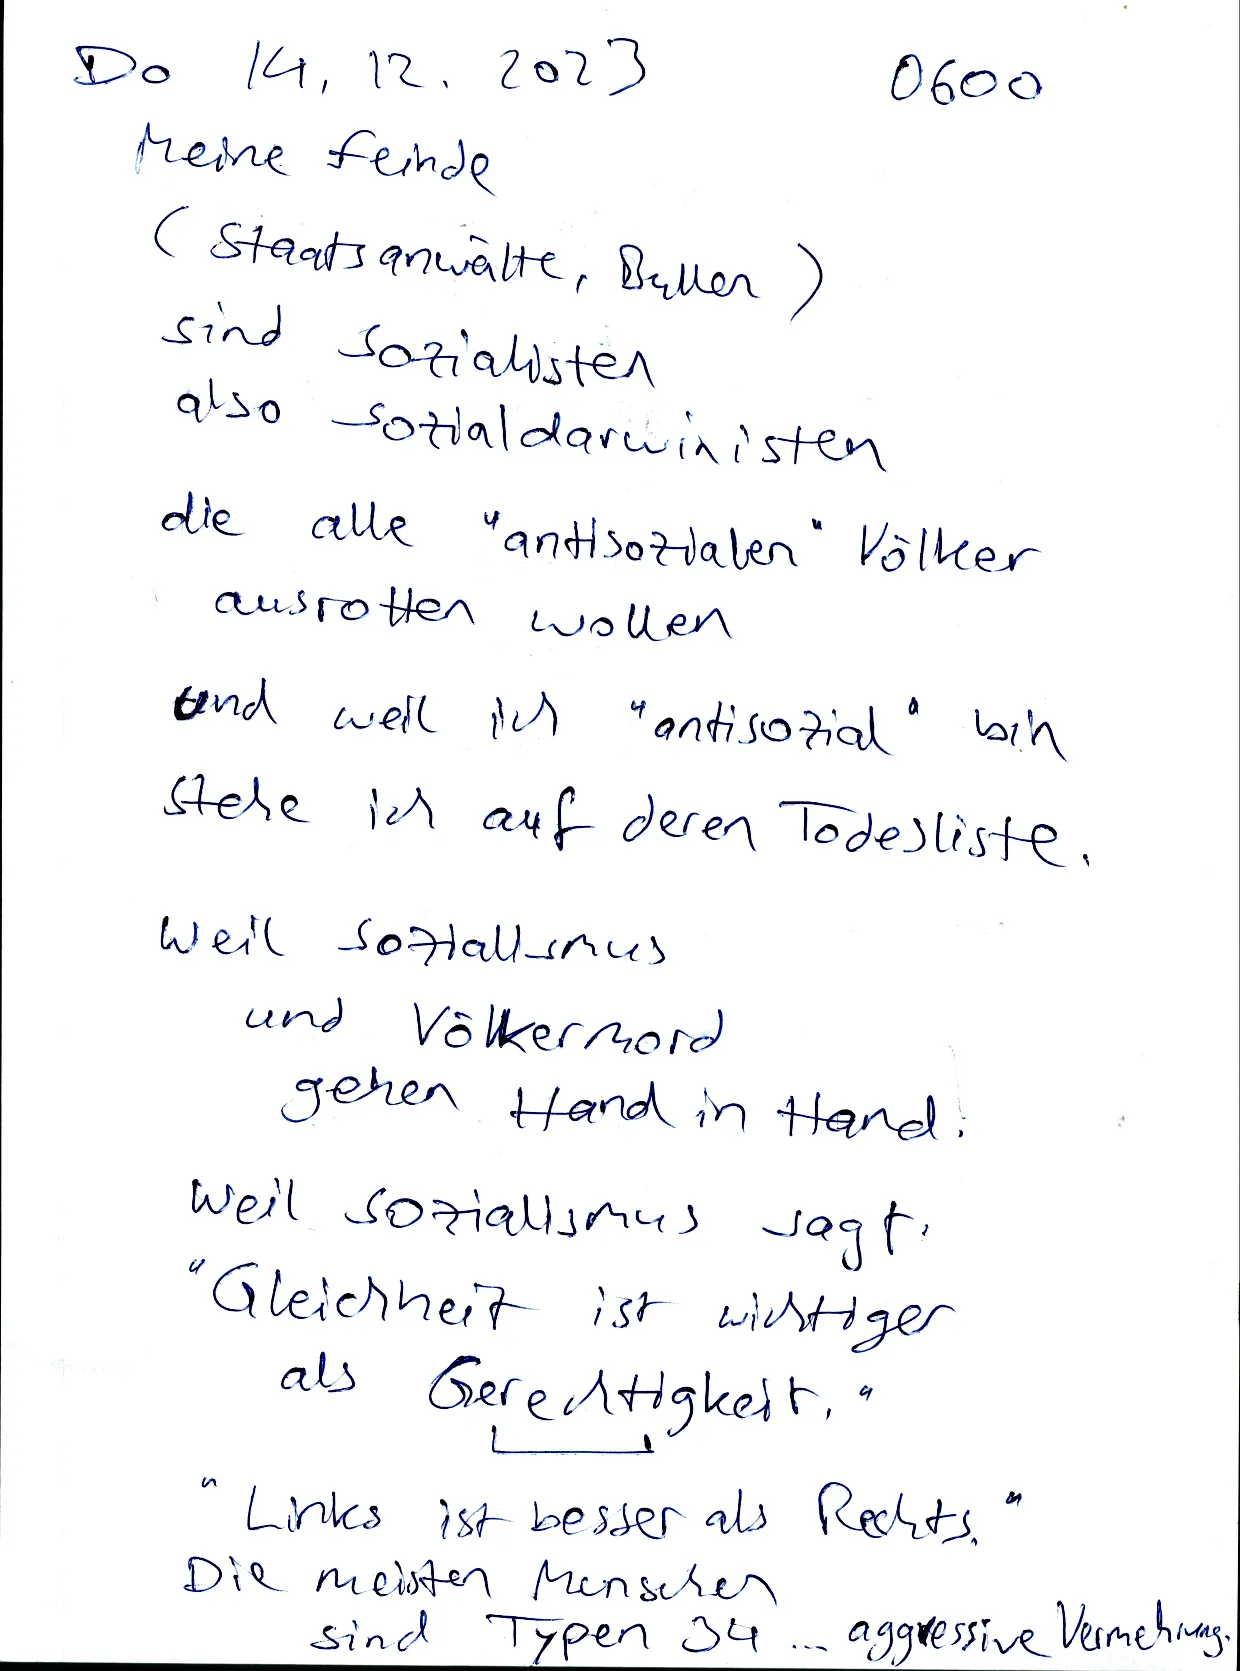 Do 14.12.2023 0600
Meine Feinde
(Staatsanwälte, Bullen)
sind Sozialisten
also Sozialdarwinisten
die alle "antisozialen" Völker
ausrotten wollen
und weil ich "antisozial" bin
stehe ich auf deren Todesliste.
Weil Sozialismus
und Völkermord
gehen Hand in Hand.
Weil Sozialismus sagt:
"Gleichheit ist wichtiger
als Gerechtigkeit."
"Links ist besser als Rechts."
Die meisten Menschen
sind Typen 34 ... aggressive Vermehrung.